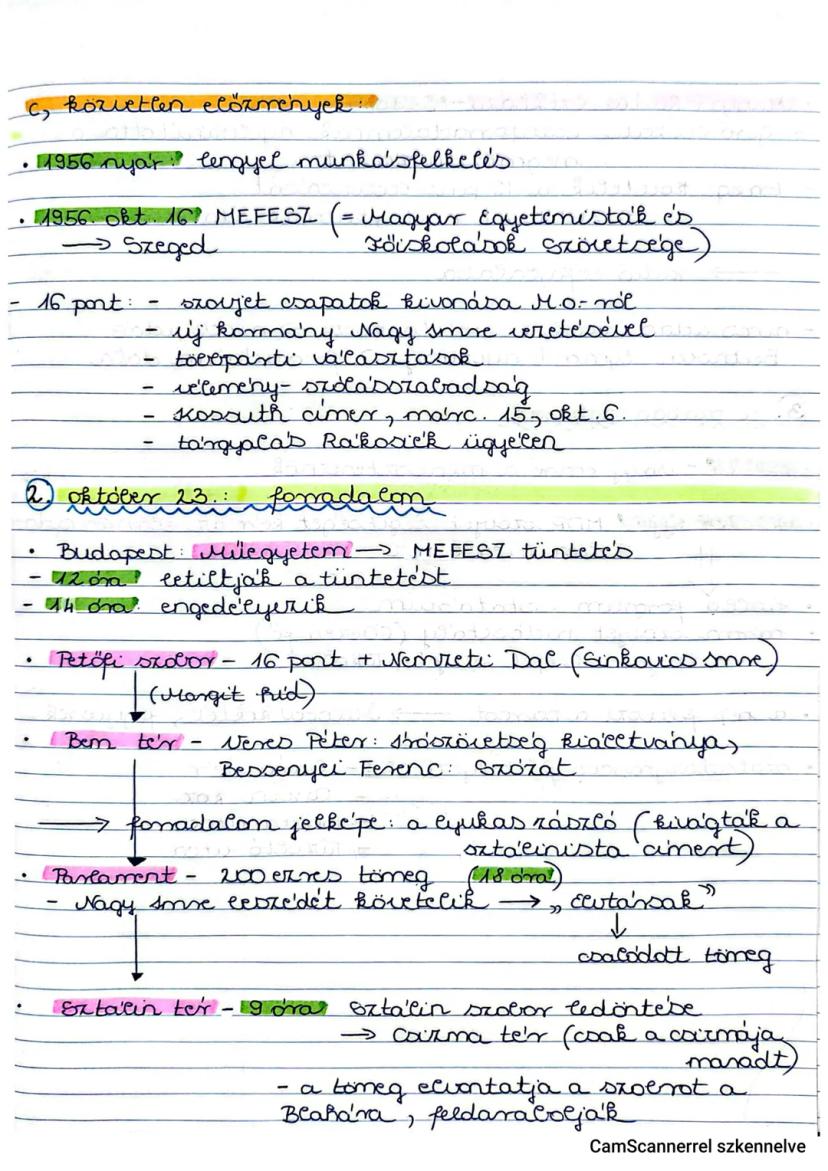 c, közvetlen előzmények:
• 1956 nyár: lengyel munkásfelkelés
• 1956. okt. 16: MEFESZ (= Magyar Egyetemisták és
→ Szeged Főiskolások Szövetsége)
- 16 pont: - szovjet csapatok kivonása M.o.-ról
- új kormány Nagy Imre vezetésével
- többpárti választások
- vélemény- szólásszabadság
- Kossuth címer, márc. 15, okt. 6.
- tárgyalás Rákosiék ügyében
2. október 23.: forradalom
• Budapest: Műegyetem → MEFESZ tüntetés
- 12 óra: betiltják a tüntetést
- 14 óra: engedélyezik
• Petőfi szobor - 16 pont + Nemzeti Dal (Sinkovics Imre)
(Margit híd)
• Bem tér - Veres Péter: Írószövetség kiáltványa,
Bessenyei Ferenc: Szózat
→ forradalom jelképe: a lyukas zászló (kivágták a
sztálinista címert)
• Parlament - 200 ezres tömeg (18 óra)
- Nagy Imre beszédét követelik → „ Elvtársak"
↓
csalódott tömeg
• Sztálin tér - 9 óra Sztálin szobor ledöntése
→ Csizma tér (csak a csizmája
maradt)
- a tömeg elvontatja a szobrot a
Blahára, feldarabolják
CamScannerrel szkennelve